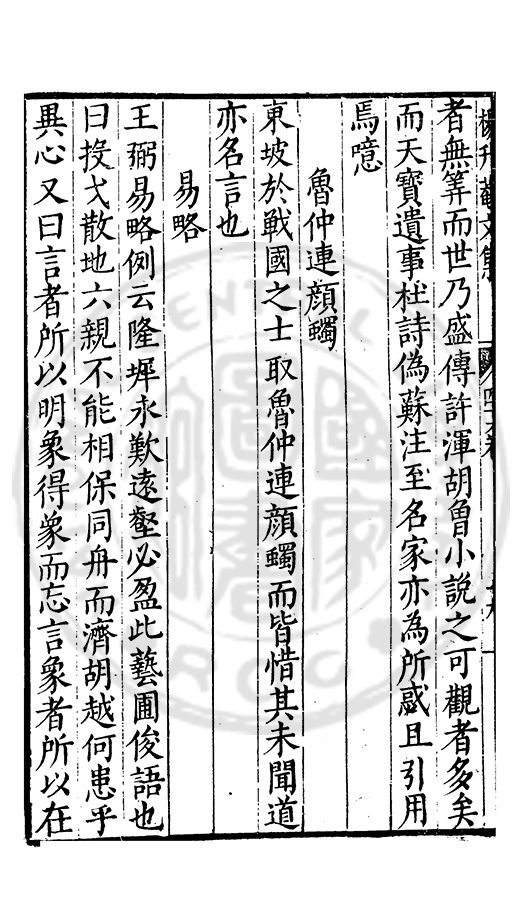 者無筭而世乃盛傳許渾胡魯小說之可觀者多矣
而天寶遺事杜詩偽蘇注至名家亦為所惑且引用
焉噫
魯仲連顔蠋
東坡於戰國之士取魯仲連顔蠋而皆惜其未聞道
亦名言也
易略
王弼易略例云隆墀永歎遠壑必盈此藝圃俊語也
曰投戈散地六親不能相保同舟而濟胡越何患乎
異心又曰言者所以明象得象而忘言象者所以在